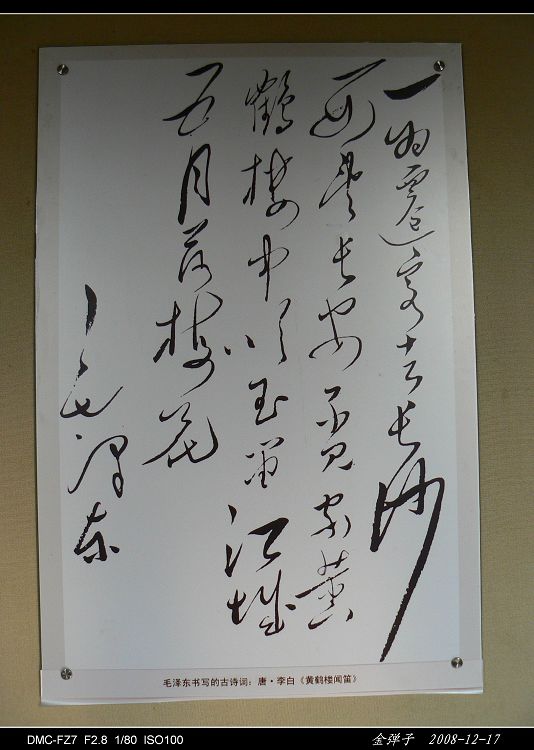 一为迁客去长沙
西望长安不见家黄
鹤楼中吹玉笛江城
五月落梅花
毛泽东
毛泽东书写的古诗词：唐·李白《黄鹤楼闻笛》
DMC-FZ7 F2.8 1/80 ISO100
金弹子 2008-12-17